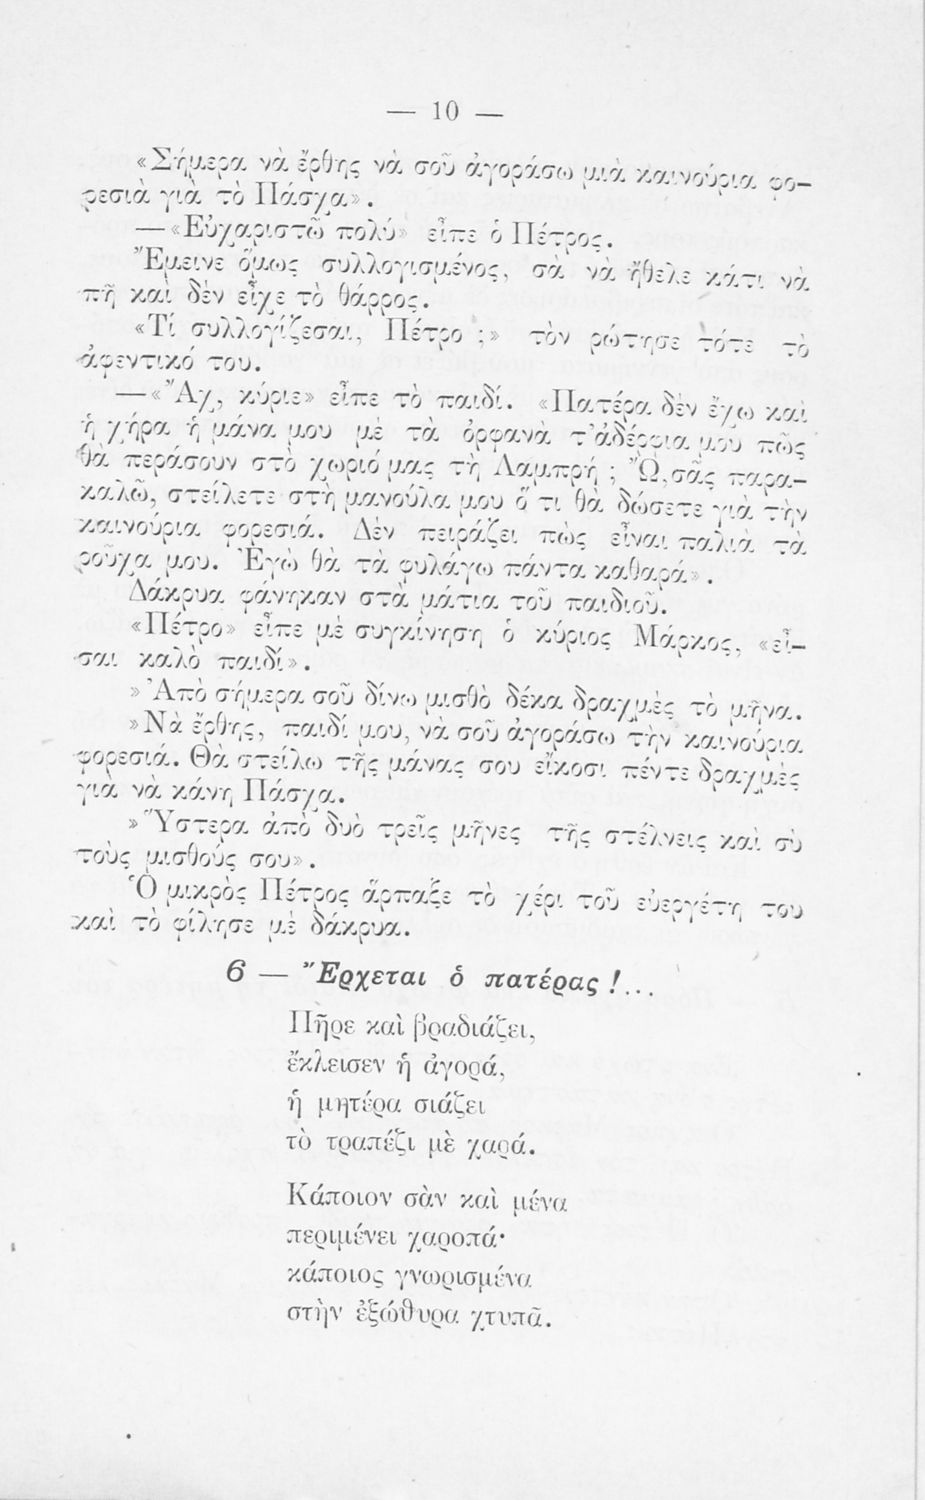 — 10 —
«Σήμερα νὰ ἔρθης νὰ σοῦ ἀγοράσω μιὰ καινούρια φο-
ρεσιὰ γιὰ τὸ Πάσχα».
— «Εὐχαριστῶ πολύ» εἶπε ὁ Πέτρος.
Ἔμεινε ὅμως συλλογισμένος, σὰ νὰ ἤθελε κάτι νὰ
πῆ καὶ δὲν εἶχε τὸ θάρρος.
«Τί συλλογίζεσαι, Πέτρο ;» τὸν ρώτησε τότε τὸ
ἀφεντικό του.
—«Ἄχ, κύριε» εἶπε τὸ παιδί. «Πατέρα δὲν ἔχω καὶ
ἡ χήρα ἡ μάνα μου μὲ τὰ ὀρφανὰ τ'ἀδέρφια μου πῶς
θὰ περάσουν στὸ χωριό μας τὴ Λαμπρή ; Ὤ, σᾶς παρα-
καλῶ, στείλετε στὴ μανούλα μου ὅ τι θὰ δώσετε γιὰ τὴν
καινούρια φορεσιά. Δὲν πειράζει πὼς εἶναι παλιὰ τὰ
ροῦχα μου. Ἐγὼ θὰ τὰ φυλάγω πάντα καθαρά».
Δάκρυα φάνηκαν στὰ μάτια τοῦ παιδιοῦ.
«Πέτρο» εἶπε μὲ συγκίνηση ὁ κύριος Μάρκος, «εἶ-
σαι καλὸ παιδί».
» Ἀπὸ σήμερα σοῦ δίνω μισθὸ δέκα δραχμὲς τὸ μῆνα.
»Νὰ ἔρθης, παιδί μου, νὰ σοῦ ἀγοράσω τὴν καινούρια
φορεσιά. Θὰ στείλω τῆς μάνας σου εἴκοσι πέντε δραχμὲς
γιὰ νὰ κάνη Πάσχα.
» Ὕστερα ἀπὸ δυὸ τρεῖς μῆνες τῆς στέλνεις καὶ σὺ
τοὺς μισθούς σου».
Ὁ μικρὸς Πέτρος ἅρπαξε τὸ χέρι τοῦ εὐεργέτη του
καὶ τὸ φίλησε μὲ δάκρυα.
6 — Ἔρχεται ὁ πατέρας !...
Πῆρε καὶ βραδιάζει,
ἔκλεισεν ἡ ἀγορά,
ἡ μητέρα σιάζει
τὸ τραπέζι μὲ χαρά.
Κάποιον σὰν καὶ μένα
περιμένει χαροπά·
κάποιος γνωρισμένα
στὴν ἐξώθυρα χτυπᾶ.